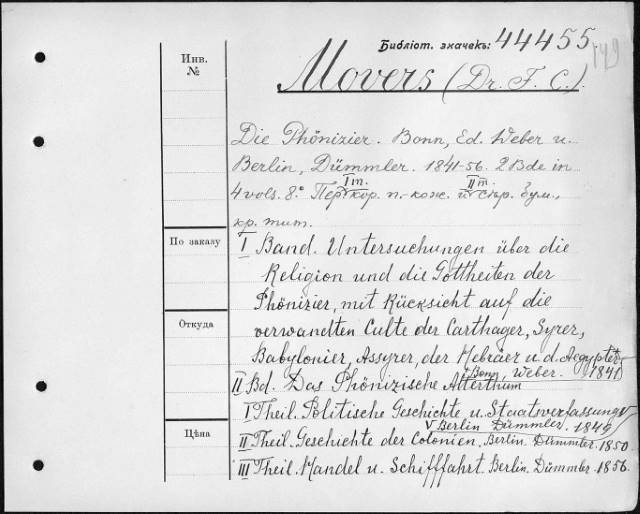 Библіот. значекъ: 44455
149
Инв.
№
Movers (Dr. F. C.).
Die Phönizier. Bonn, Ed. Weber u.
Berlin, Dümmler. 1841-56. 2 Bde in
I т. II т.
4 vols. 8° Пер. кор. п.-кож. и сѣр. бум.,
кр. тит.
По заказу
I Band. Untersuchungen über die
Religion und die Gottheiten der
Phönizier, mit Rücksicht auf die
Откуда
verwandten Culte der Carthager, Syrer,
Babylonier, Assyrer, der Hebräer u. d. Aegypter.
Bonn, Weber. 1841
II Bd. Das Phönizische Alterthum
I Theil. Politische Geschichte u. Staatsverfassung
Цѣна
Berlin Dümmler. 1849
II Theil. Geschichte der Colonien. Berlin. Dümmler. 1850
III Theil. Handel u. Schifffahrt. Berlin. Dümmler. 1856